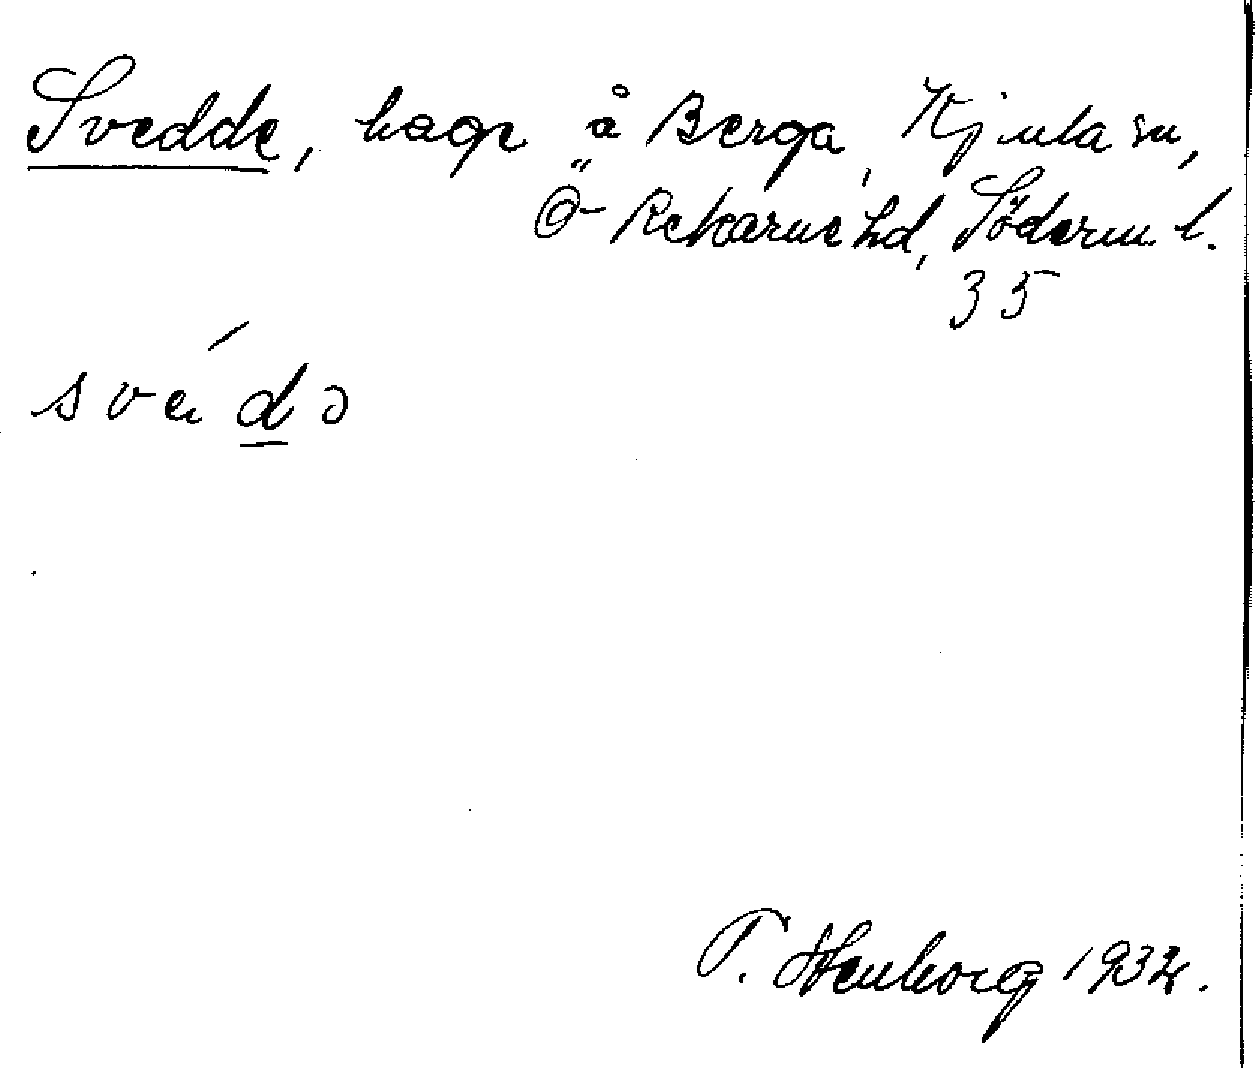 Svedde, hage å Berga, Kjula sn,
Ö Rekarne hd, Söderm l.
35
svedɔ
T. Stenborg 1932.